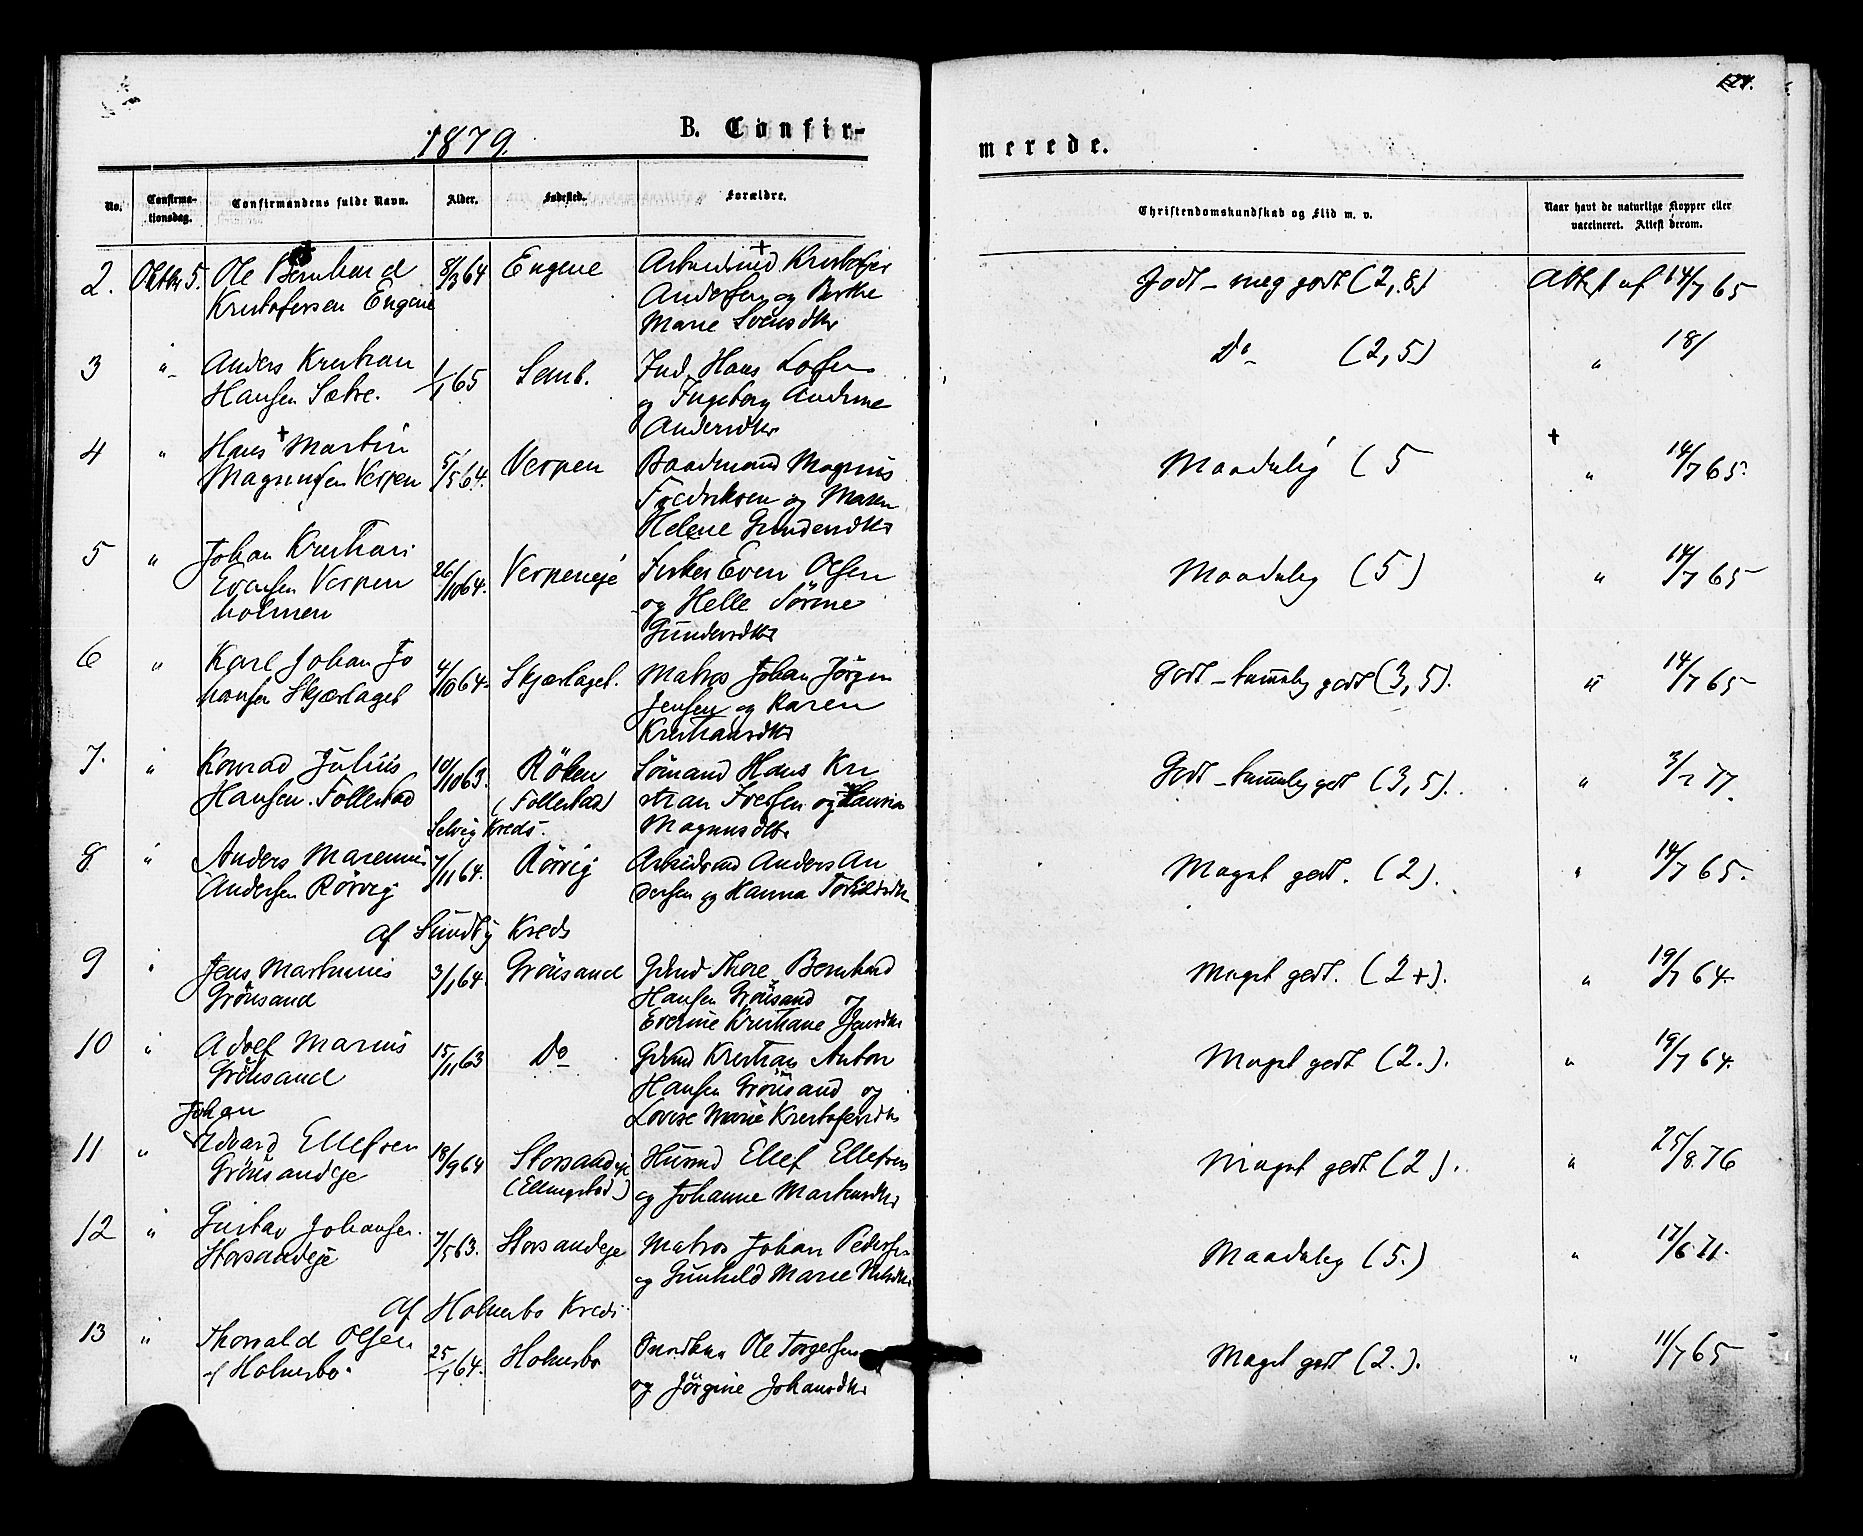 1879.
B. Confir-
No.
Confirma-
tionsdag.
Confirmandens fulde Navn.
Alder.
Fødested.
Forældre.
2. Oktbr 5. Ole Bernhard 8/3 64 Engene
Kristofersen Engene
Andersen og
Marie Svensdtr
3 " Anders Kristian 1/1 65
Hansen Sætre.
Ind. Hans
og Ingeborg Andrine
Andersdtr
4 " Hans Martin 5/5 64. Verpen
Magnusen Verpen
Baadmand Magnus
Fredriksen og Maren
Helene Gundersdtr
5 " Johan Kristian 26/10 64. Verpeneje
Evensen Verpen
holmen
Fisker Even Olsen
og Helle Sörine
Gundersdtr
6 " Karl Johan Jo 4/10 64. Skjærlaget.
hansen Skjærlaget
Matros Johan Jörgen
Jensen og Karen
Kristiansdtr
7. " Konrad Julius 10/10 63. Röken
Hansen Follestad (Follestad)
Sömand Hans Kri
stian Iversen og
Magnusdtr
Selvig Kreds.
8 " Anders Marenius 7/11 64. Rörvig
Andersen Rörvig
Arbeidsmd Anders An
dersen og Hanna
af Sundby Kreds
9 " Jens Martinius 3/1 64. Grönsand
Grönsand
Gdmd Thore Bernhard
Hansen Grönsand og
Everine Kristiane Jensdtr
10 " Adolf Marius 15/11 63 Do
Grönsand
Gdmd Kristian Anton
Hansen Grönsand og
Lovise Marie Kristofersdtr
Johan
11 " Edvard Ellefsen 18/9 64 Storsandeje
Grönsandeje (Ellingstad)
Husmd Ellef Ellefsen
og Johanne Martinsdtr
12 " Gustav Johansen 7/5 63. Storsandeje
Storsandeje
Matros Johan Pedersen
og Gunhild Marie Nilsdtr
af Holmsbo Kreds
13 " Thorvald Olsen 25/1 64. Holmsbo
af Holmsbo.
Ole Torgersen
og Jörgine Johansdtr
merede.
Christendomskundskab og Flid m. v.
Naar havt de naturlige Kopper eller
vaccineret. Attest derom.
Godt - meg godt (2,8) Attest af 14/7 65
Do (2,5) " 18/
Maadelig (5 " 14/7 65.
Maadelig (5) " 14/7 65
Godt - temmelig godt (3,5). " 14/7 65
Godt - temmelig godt (3,5). "
Meget godt. (2). " 14/7 65.
Meget godt. (2+). " 19/7 64.
Meget godt (2.). " 19/7 64.
Meget godt (2). " 25/8. 76
Maadelig (5.) " 17/6. 71.
Meget godt (2.). " 11/7 65